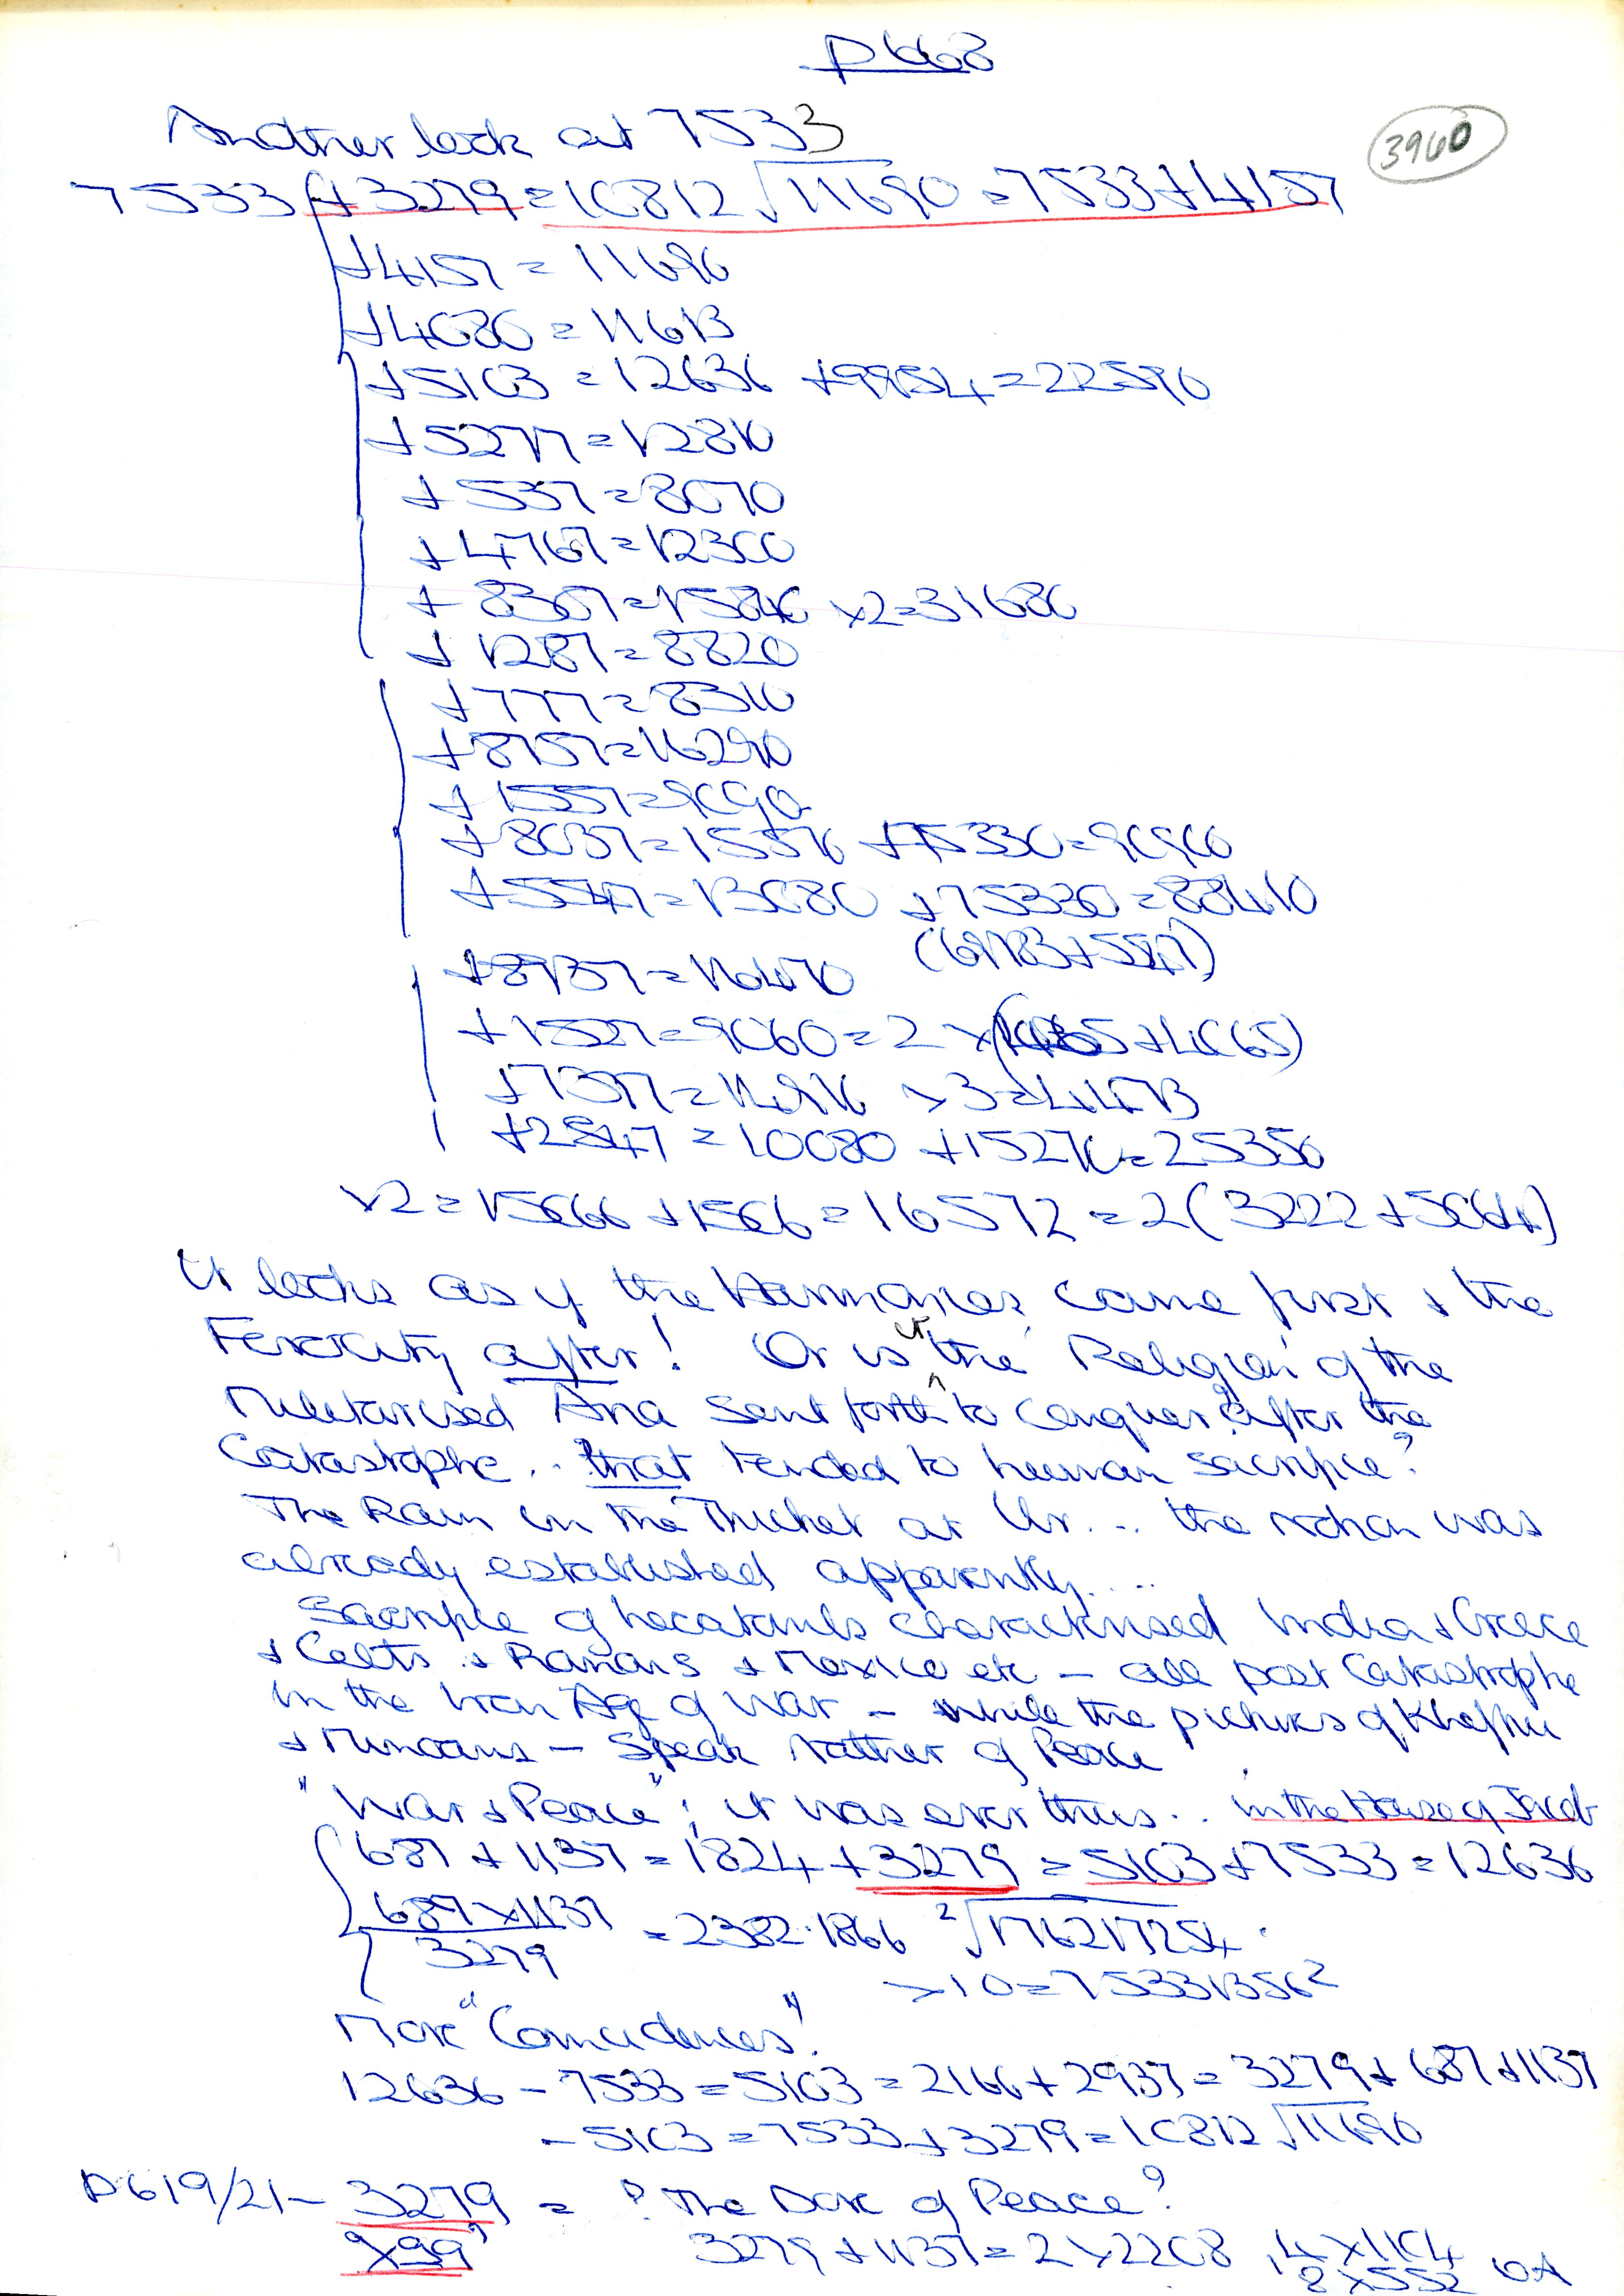 p668
3960
Another look at 7533
7533 + 3279 = 10812 √11690 = 7533 + 4157
+4157 = 11690
+4080 = 11613
+5103 = 12636 +9954 = 22590
+5277 = 12810
+537 = 8070
+4767 = 12300
+8307 = 15840 ×2 = 31680
+1287 = 8820
+777 = 8310
+8757 = 16290
+1557 = 9090
+8037 = 15570 +75330 = 90900
+5547 = 13080 +75330 = 88410
(69783+5547)
+8937 = 16470
+1527 = 9060 = 2 × ( +4065)
+7377 = 14910 ×3 = 44730
+2547 = 10080 +15270 = 25350
×2 = 15066 + 1506 = 16572 = 2(3222 + 5064)
It looks as if the Harmonies came first & the
Ferocity after! Or is it the Religion of the
Militarised Aria sent forth to conquer after the
Catastrophe .. that tended to human sacrifice?
The Ram in the Thicket at Ur... the notion was
already established apparently....
Sacrifice of hecatombs characterised India & Greece
& Celts & Romans & Mexico etc – all post Catastrophe
in the Iron Age of War – while the pictures of Kheftiu
& Minoans – speak rather of Peace
"War & Peace"; it was ever thus .. in the House of Jacob
687 + 1137 = 1824 + 3279 = 5103 + 7533 = 12636
687 × 1137
3279
= 2382·1866 ²√1762·17254
×10 = 7533·1356²
More "Coincidences"!
12636 – 7533 = 5103 = 2166 + 2937 = 3279 + 687 + 1137
– 5103 = 7533 + 3279 = 10812 √11690
p619/21 – 3279 = ? The Date of Peace?
"×99" 3279 + 1137 = 2 × 2208, 4 × 1104
8 × 552